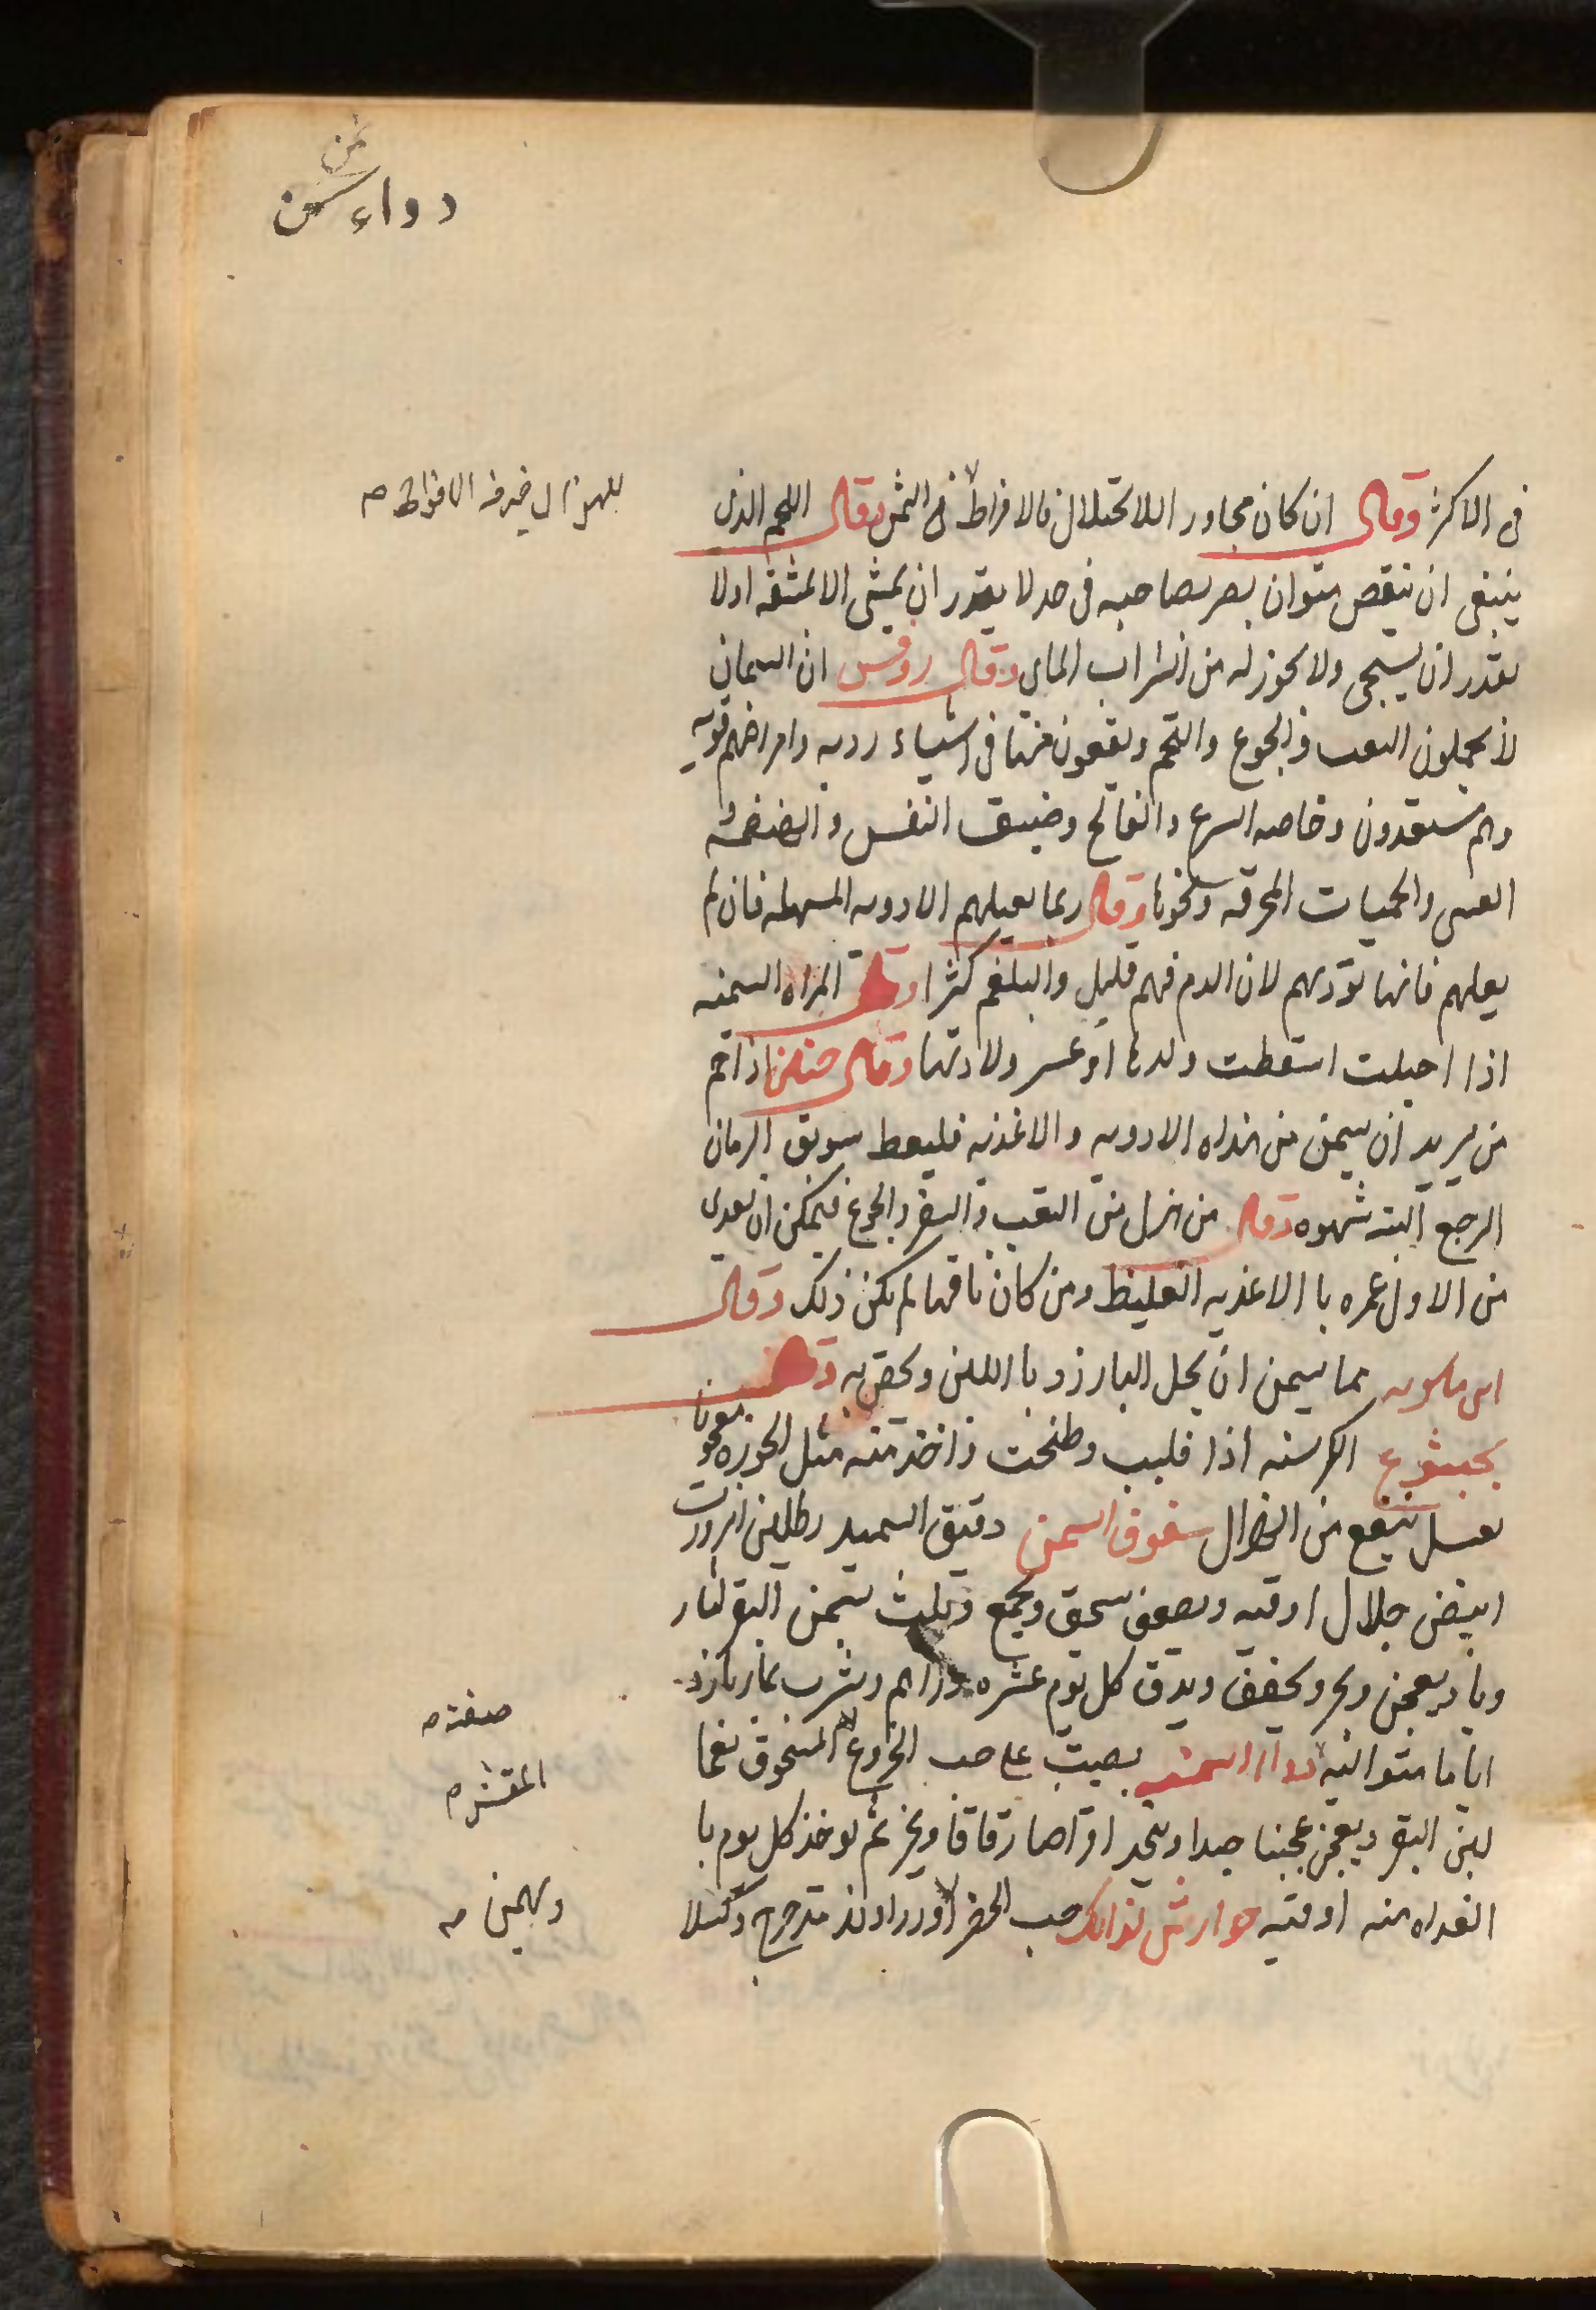 دواء سمن
للهزال خير من الافراط صح
فى الاكثر وقال ان كان مجاور اللاكتلال فالافراط فى الثمن وقال اللحم الذى
ينبغى ان ينقص متوان يصر بصاحبه فى حد لا يقدر ان يمشى الا بمشقه اولا
يقدر ان يستنجى ولا يجوز له من الشراب المالى وقال روفس ان السمان
لا يحملون التعب والجوع والتخم ويقعون منها فى اشياء رديه وامراضهم قويه
وهم مستعدون وخاصه الصرع والفالج وضيق النفس والهيضه و
الغشى والحميات المحرقه ونحوها وقال ربما يعيلهم الادويه المسهله فان لم
يعلهم فانها تؤديهم لان الدم فيهم قليل والبلغم كثرا وقال المراه السمنه
اذا احبلت اسقطت ولدها او عسر ولادتها وقال حنين اذا اتخم
من يريد ان يسمن من هذاه الادويه والاغذيه فليعط سويق الرمان
الرجع البته شهوه وقال من هزل من التعب والسفر والجوع فيمكن ان يغدى
من الاول غمره با الاغذيه الغليظ ومن كان ناقها لم يكن ذلك وقال
ابن ماسويه مما يسمن ان يحل البارزد با اللبن ويحقن به وقال
بختيشوع الكرسنه اذا قليب وطبخت واخذ منه مثل الجوزه معجونا
بعسل ينفع من الهزال سفوف السمن دقيق السميد رطلين انزروت
ابيض جلال اوقيه ونصف يسحق ويجمع ويلت بسمن البقر لنار
ويا ويعجن ويحر ويجفف ويدق كل يوم عشره دراهم ويشرب بما بارد
اياما متواليه دواء السمنه يصيب على حب الخروع المنحوق نعما
لبن البقر ويعجن عجينا جيدا ويتخذ اقراصا رقاقا ويخبز ثم يوخذ كل يوم با
الغداه منه اوقيه جوارش لذلك حب الخضرا وزراوند مدحرج وكيلا
صفته صح
المقشر صح
وبهمن صح